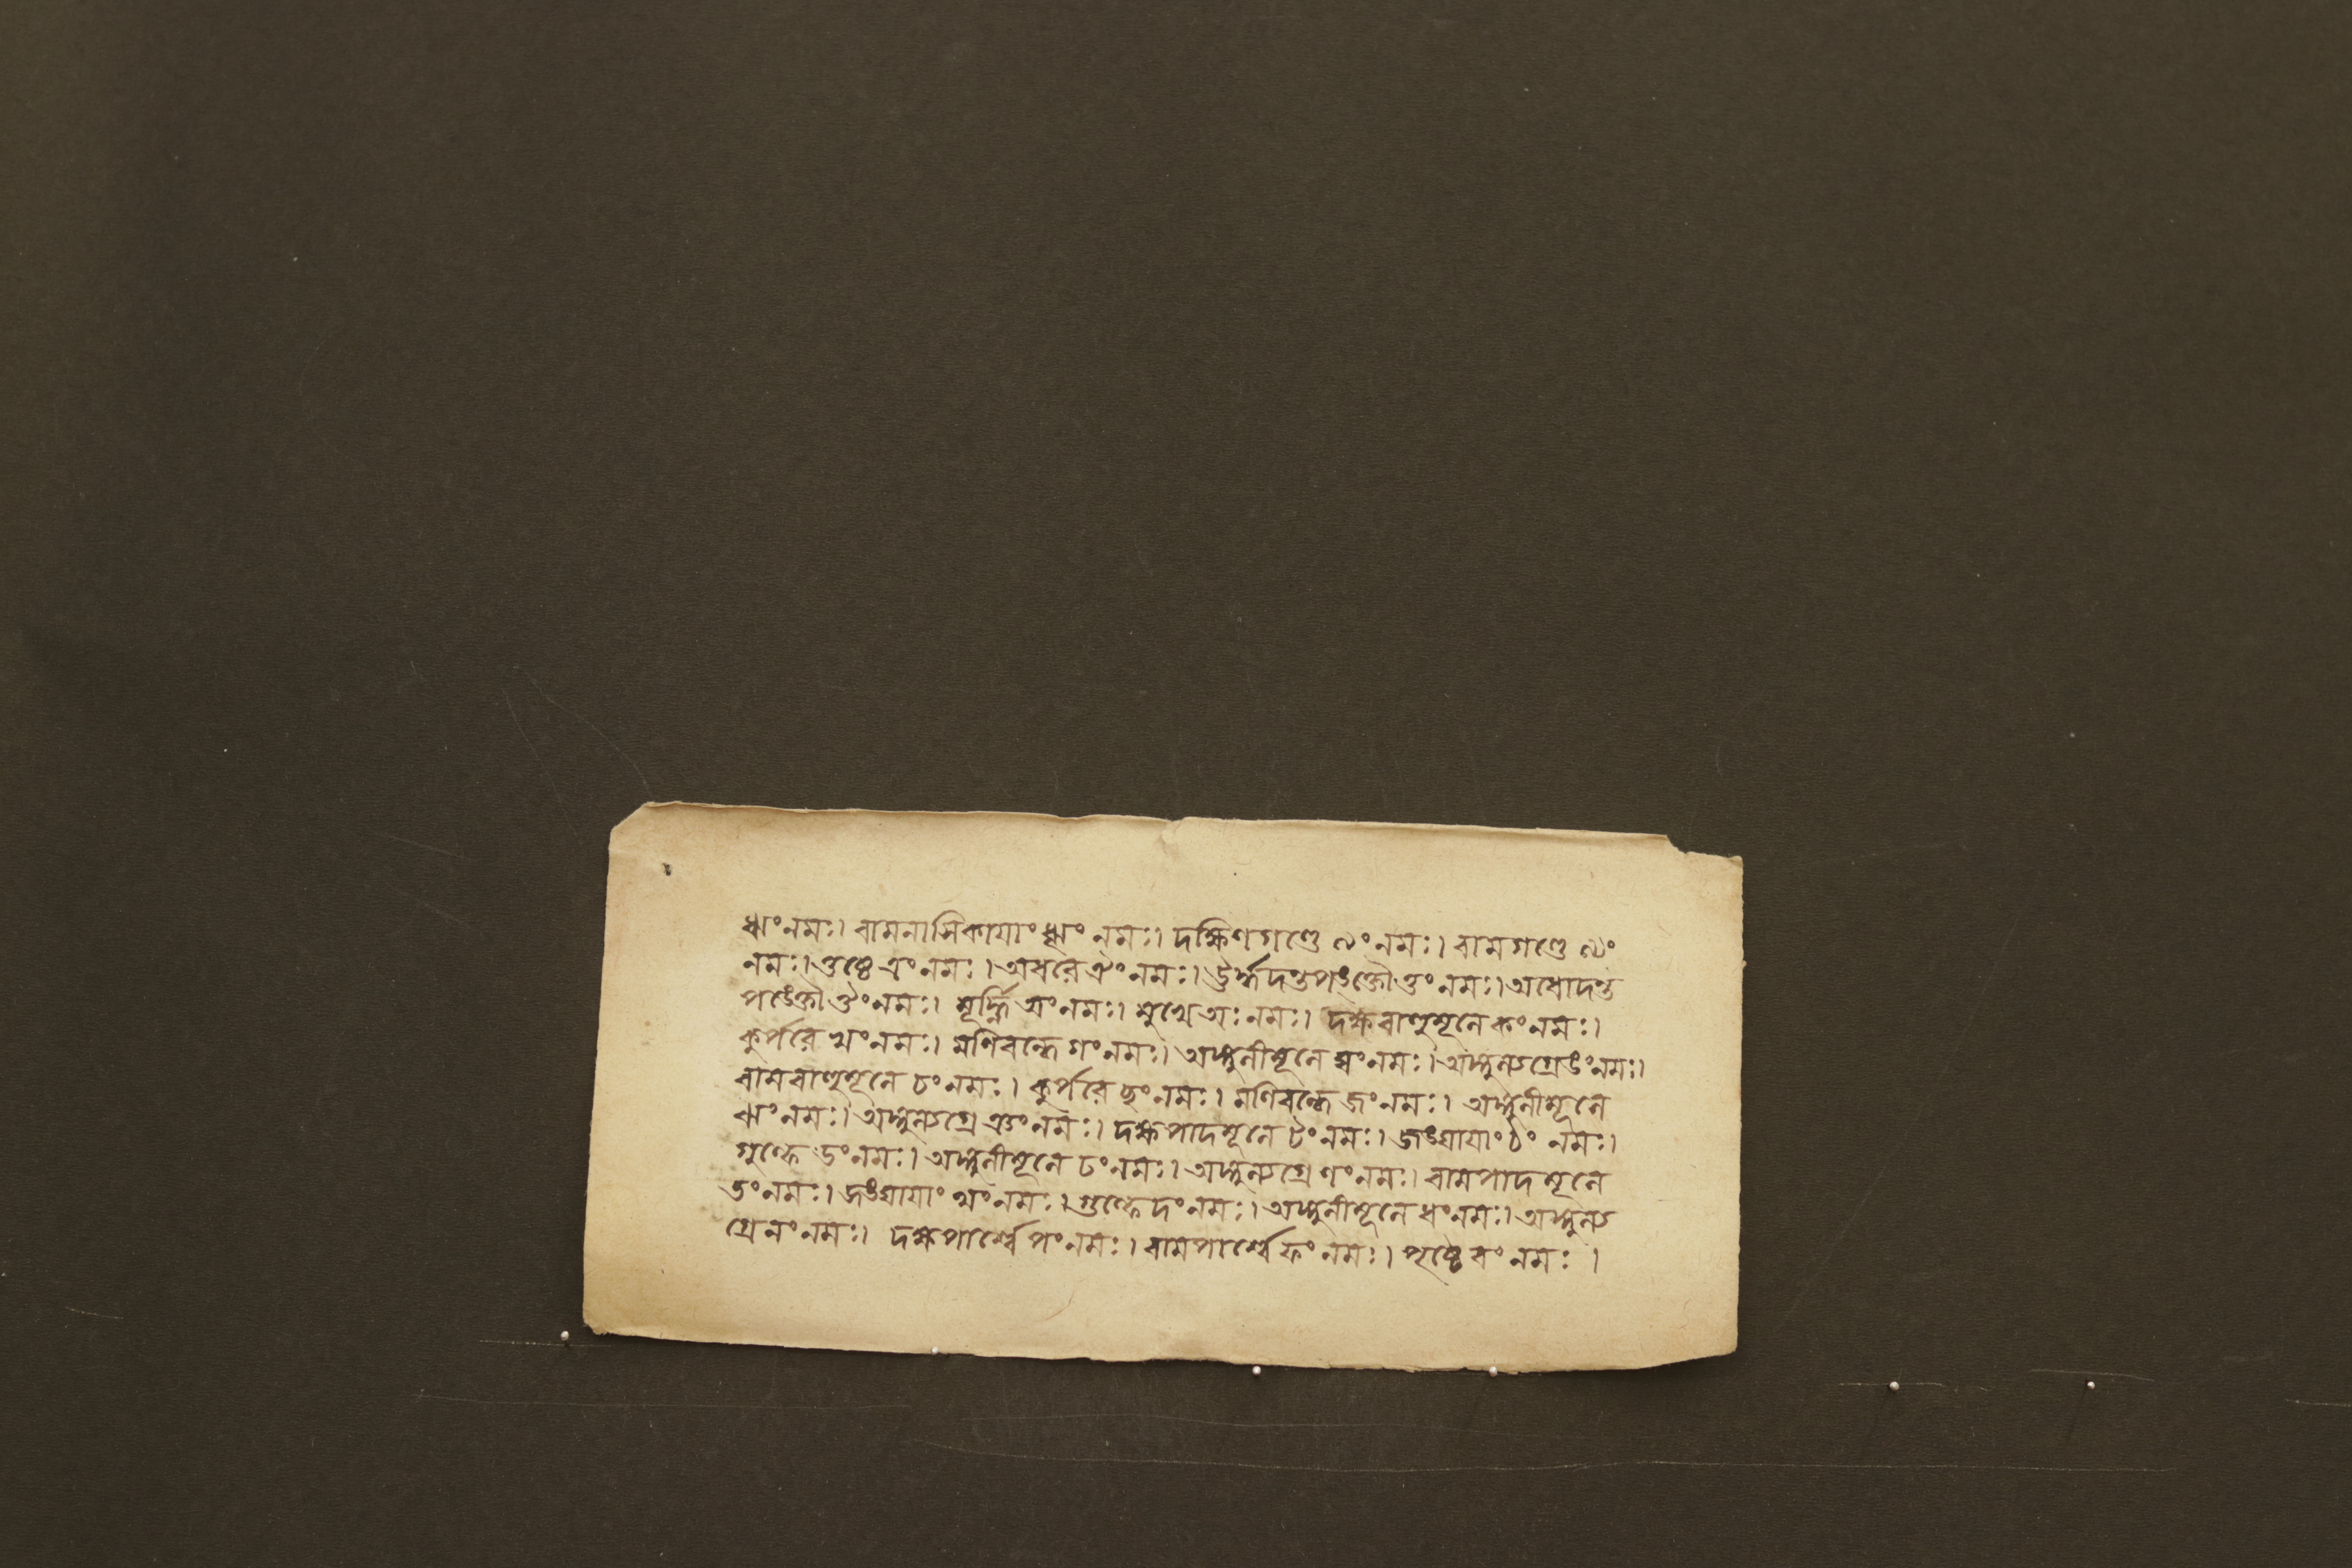 ঋং নমঃ। বামনাসিকাযাং ৠং নমঃ। দক্ষিণগণ্ডে ঌং নমঃ। বামগণ্ডে ৡং
নমঃ। ওষ্ঠে এং নমঃ। অধরে ঐং নমঃ। ঊর্দ্ধদন্তপঙক্তৌ ওং নমঃ। অধোদন্ত
পঙক্তৌ ঔং নমঃ। মূর্দ্ধ্নি অং নমঃ। মুখে অঃ নমঃ। দক্ষবাহুমূলে কং নমঃ।
কুর্পরে খং নমঃ। মণিবন্ধে গং নমঃ। অঙ্গুলীমূলে ঘং নমঃ। অঙ্গুল্যগ্রে ঙং নমঃ।
বামবাহুমূলে চং নমঃ। কুর্পরে ছং নমঃ। মণিবন্ধে জং নমঃ। অঙ্গুলীমূলে
ঝং নমঃ। অঙ্গুল্যগ্রে ঞং নমঃ। দক্ষপাদমূলে টং নমঃ। জঙ্ঘাযাং ঠং নমঃ।
গুল্ফে ডং নমঃ। অঙ্গুলীমূলে ঢং নমঃ। অঙ্গুল্যগ্রে ণং নমঃ। বামপাদমূলে
তং নমঃ। জঙ্ঘাযাং থং নমঃ। গুল্ফে দং নমঃ। অঙ্গুলীমূলে ধং নমঃ। অঙ্গুল্য
গ্রে নং নমঃ। দক্ষপার্শ্বে পং নমঃ। বামপার্শ্বে ফং নমঃ। পৃষ্ঠে বং নমঃ।